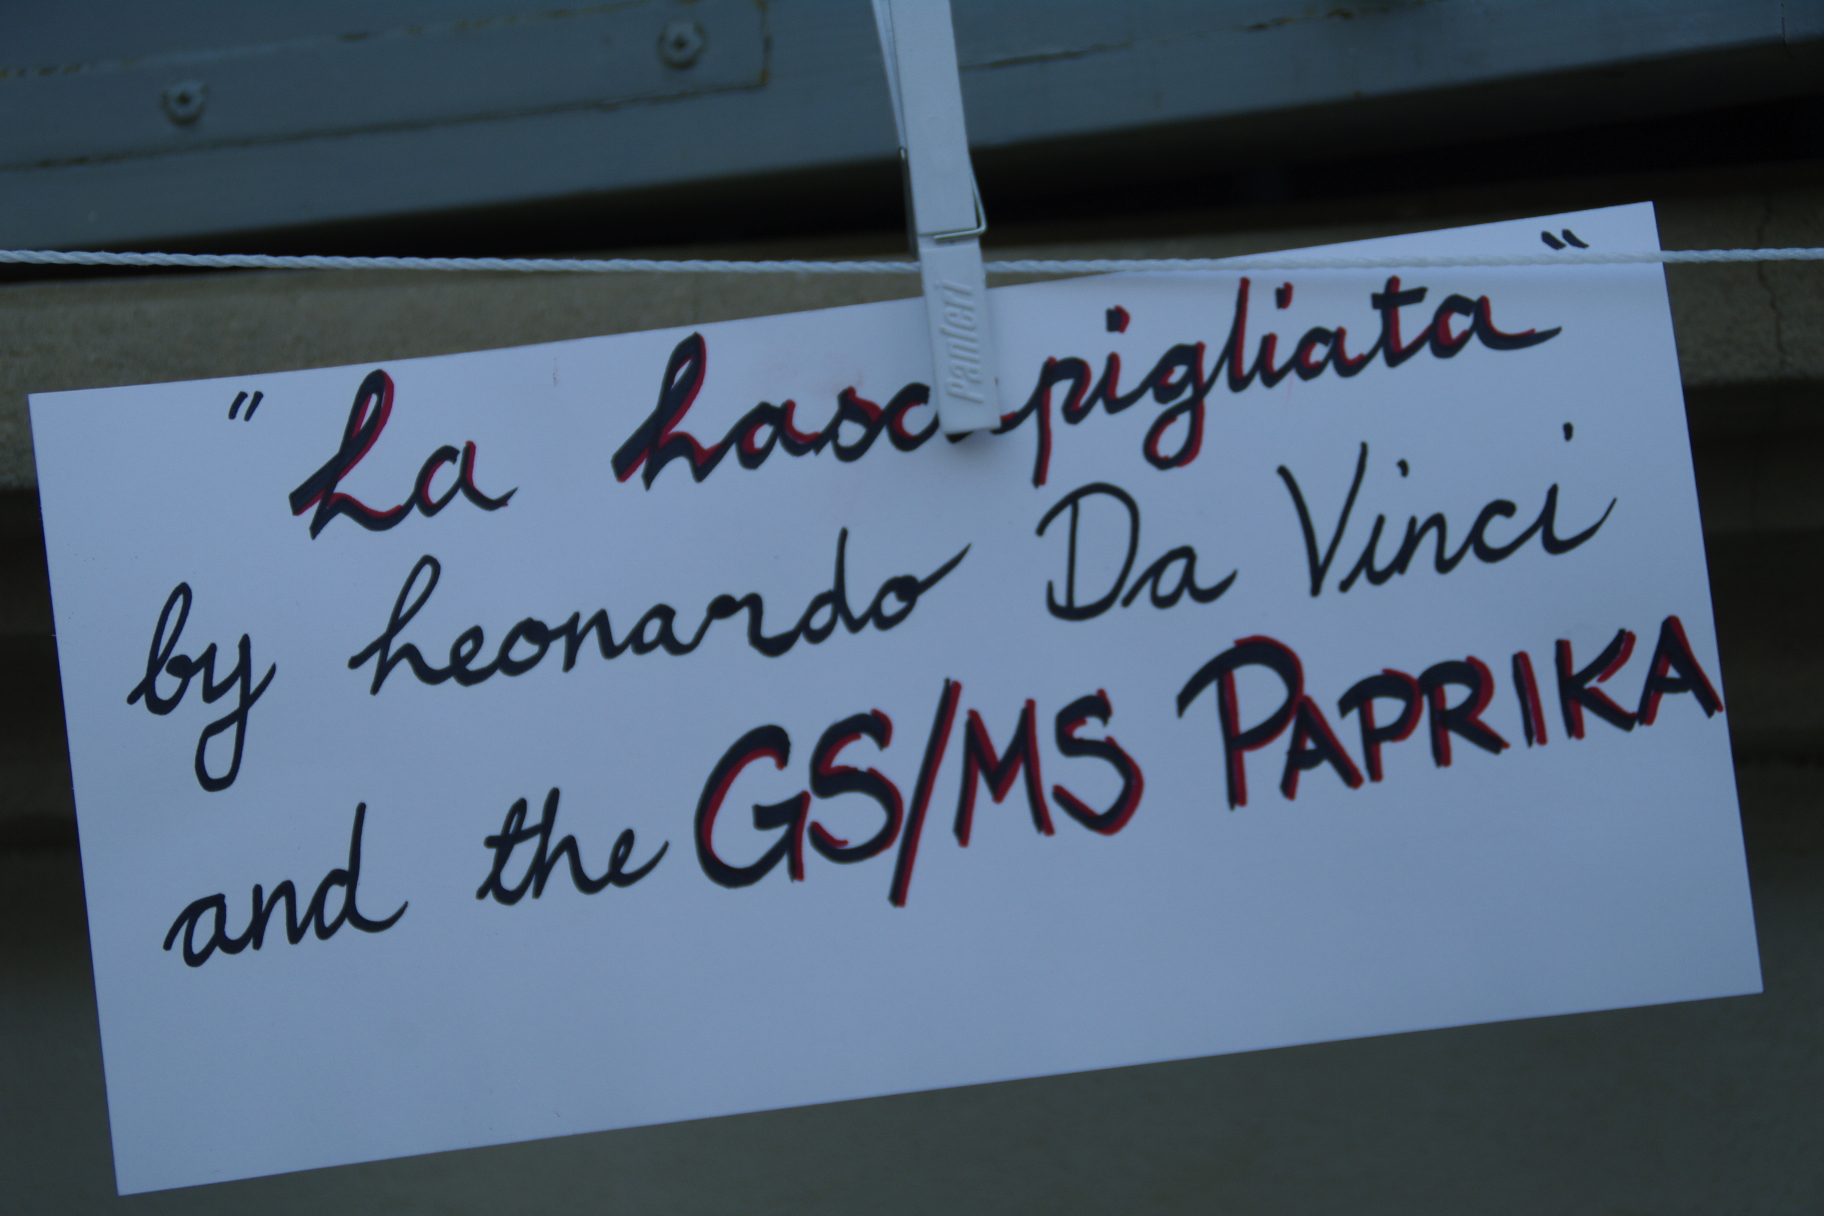 "La Lascapigliata"
by Leonardo Da Vinci
and the GS/MS PAPRIKA